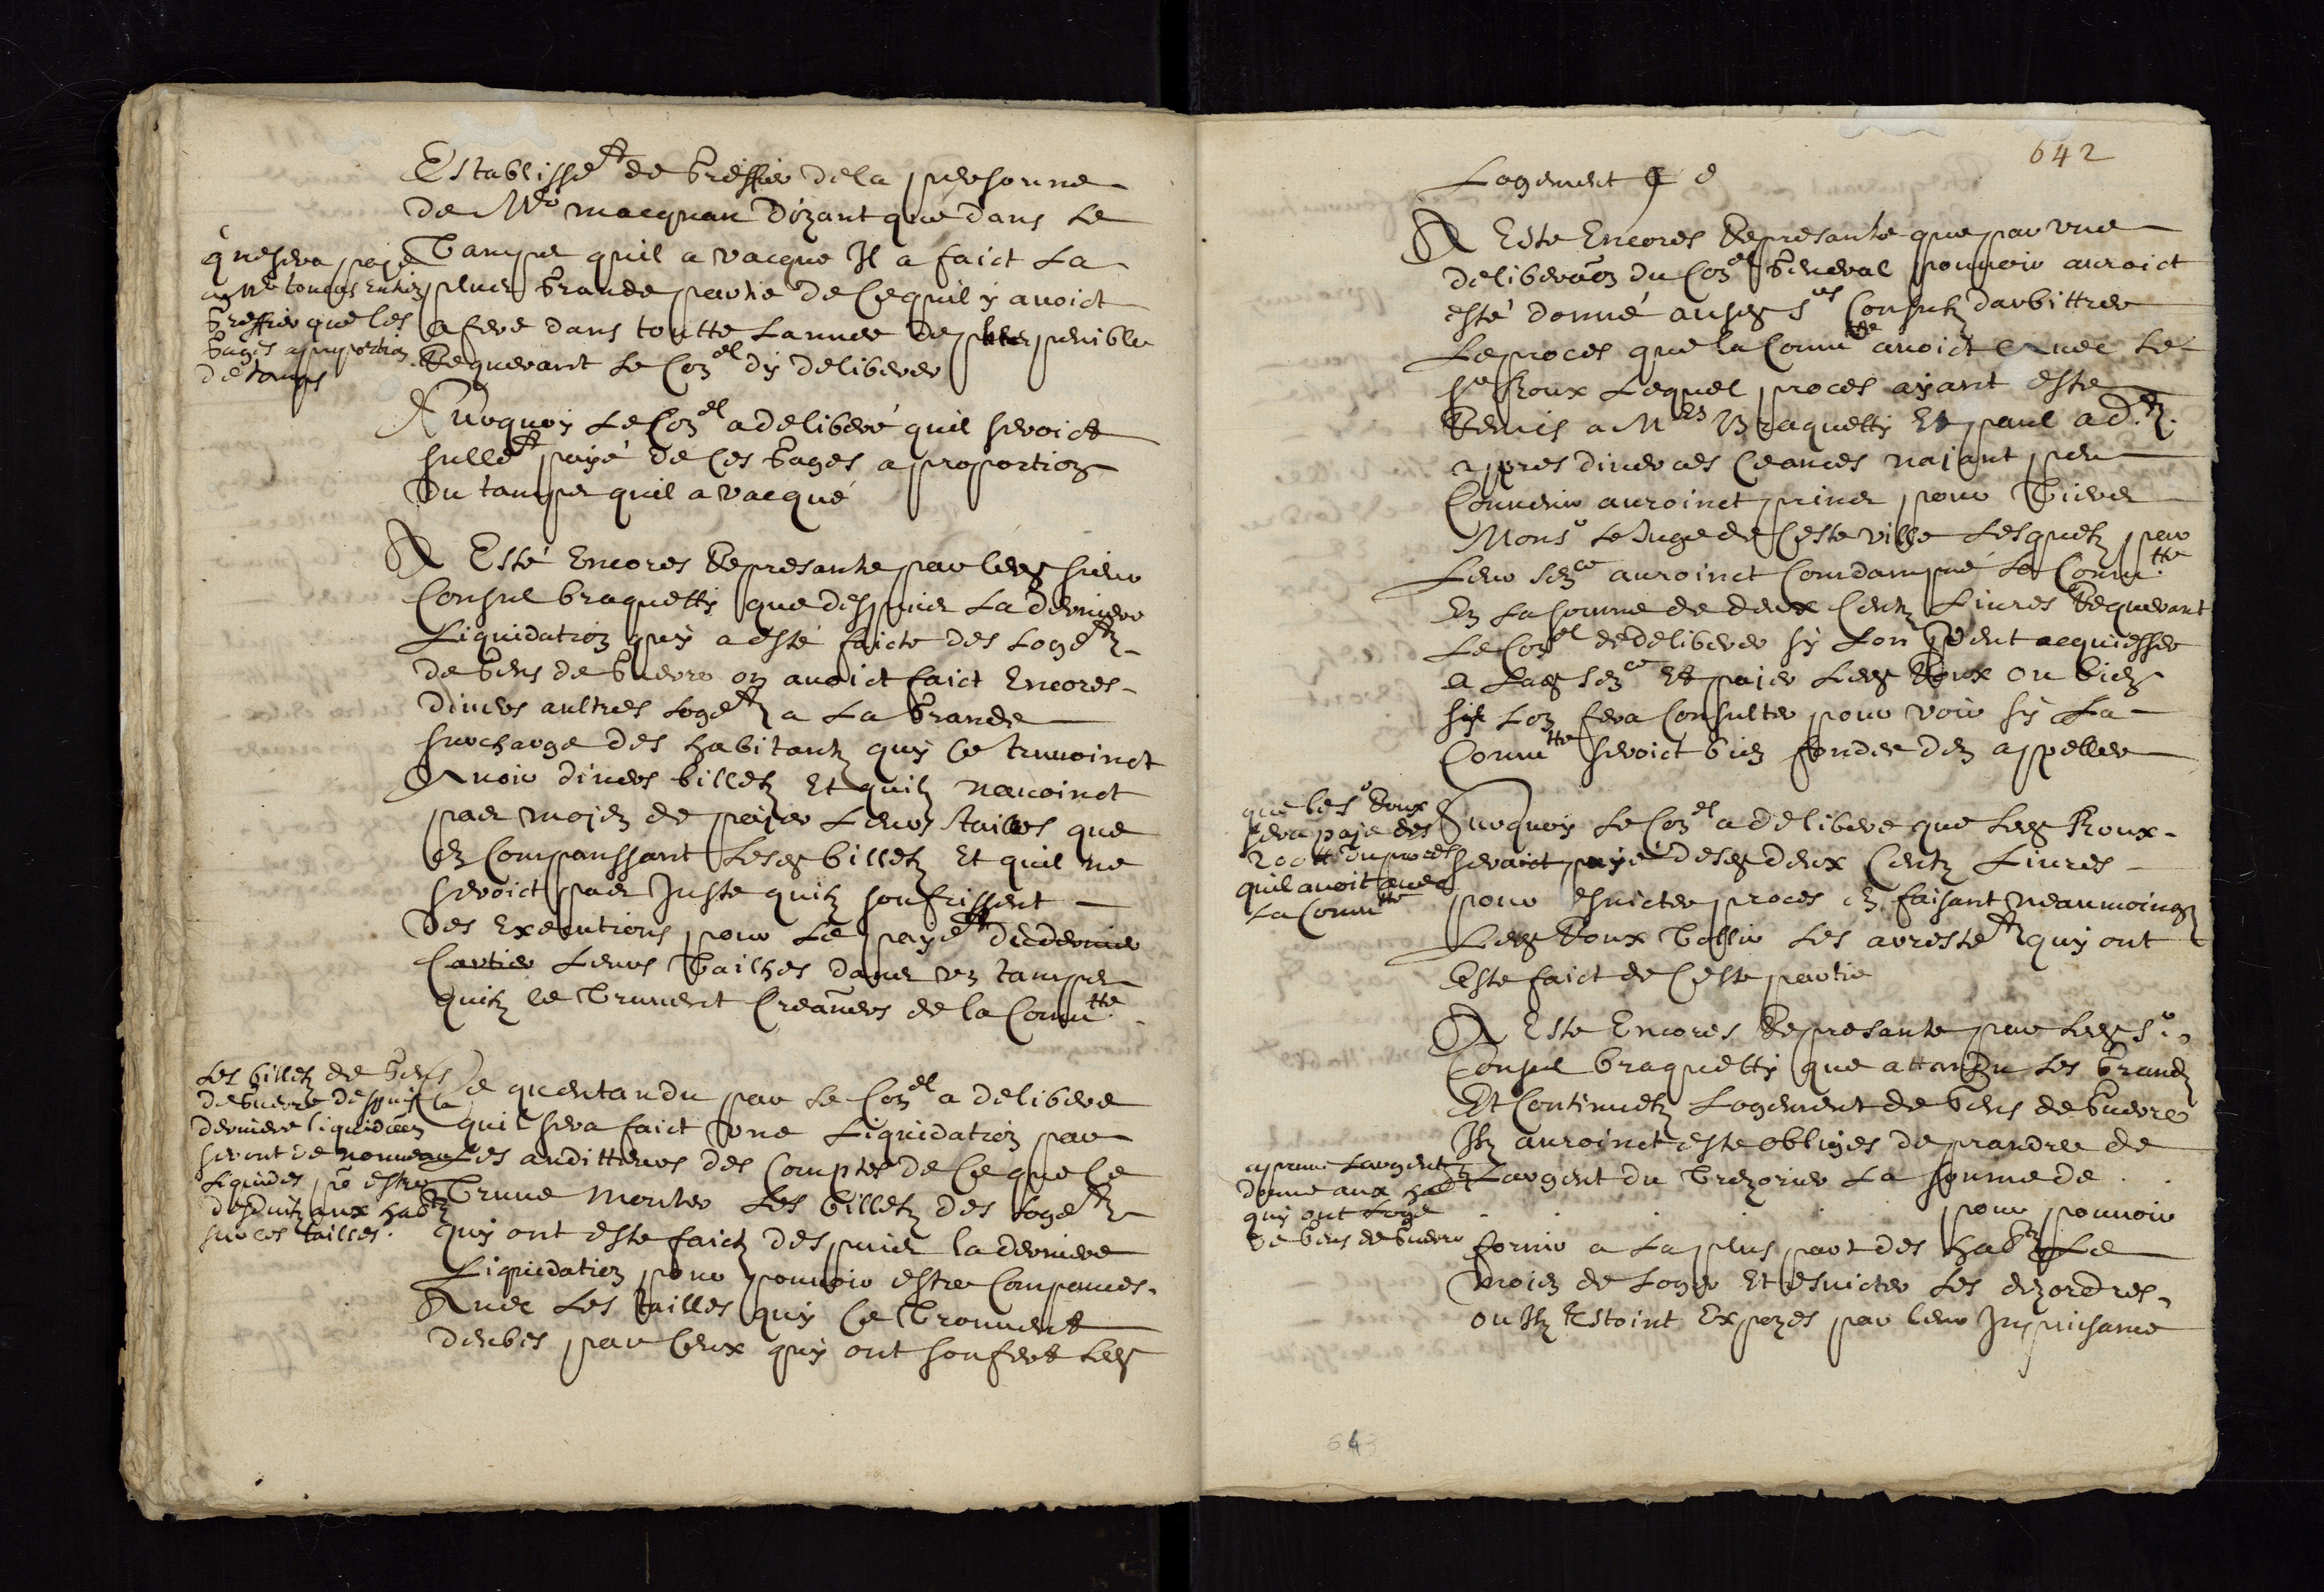 Establisse^t de Greffier de la personne
de M^e macquan dizant que dans le
Tamps quil a vacque Il a faict La
plus Grande partie de Ce quil y avoict
a fere dans toutte Lannee de plus penible
Requerant Le Con^el dy deliberer
que sera paye
a M^e
Greffier que les
Gages a proportion
de tamps
Surquoy Le Con^el a deliberé quil seroict
sulle^t payé de Ces Gages a proportion
Du tamps quil a vacqué
A Esté Encores Represante par led sieur
Consul braquetty que despuis La derniere
Liquidation quy a esté faicte des Loge^tz
de Gens de Guerre on avoict faict Encores
divers aultres Loge^tz a La Grande
surcharge des habitantz quy Ce treuvoinct
Avoir divers billetz Et quilz navoinct
pas moien de paier Leurs tailles que
en Companssant Lesd billetz Et quil ne
seroict pas Juste quilz soufrissent
Des Executions pour Le paye^t du dernier
Cartier Leurs Tailhes dans un tamps
quilz se treuvent Creanciers de la Commu^tte
Les billetz de Gens
de Guerre despuis la
derniere liquidaon
seront de nouveau
Liquides po^r estre
desduitz aux hab^tz
sur les tailles.
Ce quentandu par Le Con^el a delibere
quil sera faict Une Liquidation par
Les auditteurs des Comptes de Ce que Ce
Treuve Monter Les billetz des Loge^tz
quy ont este faictz despuis la derniere
Liquidation pour pouvoir estre Compances
Avec Les tailles quy Ce Trouvent
deubes par Ceux quy ont soufert Led
642
Logement
A Este Encores Represante que par une
deliberaon du Con^el General pouvoir auroict
esté donné ausd s^rs Consulz darbittrer
Le proces que la Commu^tte avoict Avec Le
s^r Roux Lequel proces ayant este
Remis a M^es Braquetty Et paul ad^tz
appres diverces Ceances naiant peu
Convenir auroinct prins pour Tiers
Mons^r Le Juge de Ceste ville Lesquelz par
Leur Sen^ce auroinct Comdampné La Commu^tte
En La somme de deux Centz Livres Requerant
Le Con^el de deliberer sy Lon doit acquiesser
a Lad Sen^ce Et paier Led Roux ou bien
sy Lon fera Consulter pour voir sy La
Commu^tte seroict bien fondee den appeller
que le s^r Roux
sera paje des
200 tt du proces
quil avoit avec
La Commu^tte
Surquoy Le Con^el a delibere que Led Roux
seroict payé desd deux Centz Livres
pour esvicter proces en faisant neaumoings
Led Roux Tollir Les arreste^tz quy ont
Este faict de Ceste partie
A Este Encores Represante par Led s^r
Consul braquetty que attandu Les Grandz
Et Continuelz Logement de Gens de Guerre
Ilz auroinct este obliges de prandre de
Largent du Trezorier La somme de
pour pouvoir
fornir a La plus part des hab^tz Le
moien de Loger Et esvicter Les dezordres
ou Ilz Estoint Expozes par leur Inpuisance
apreuve Largent
donne aux hab^tz
quy ont Loge
de Gens de Guerre
643